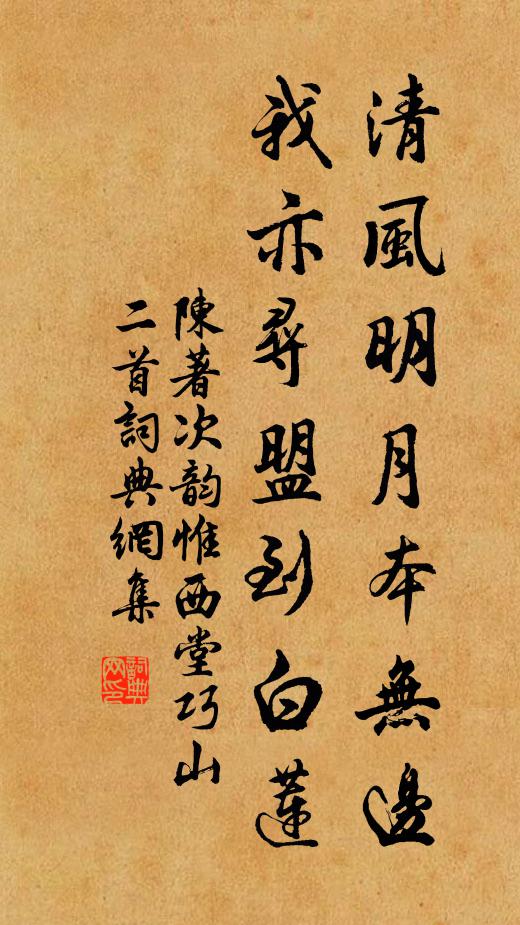 清風明月本無邊
我亦尋盟到白蓮
陳著次韵惟西堂巧山
二首詞典網集
詞典
网印